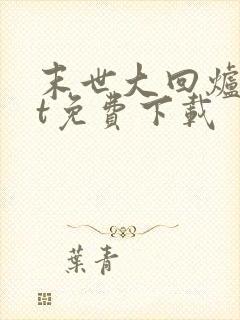 末世大回爐
t免費下載
葉青